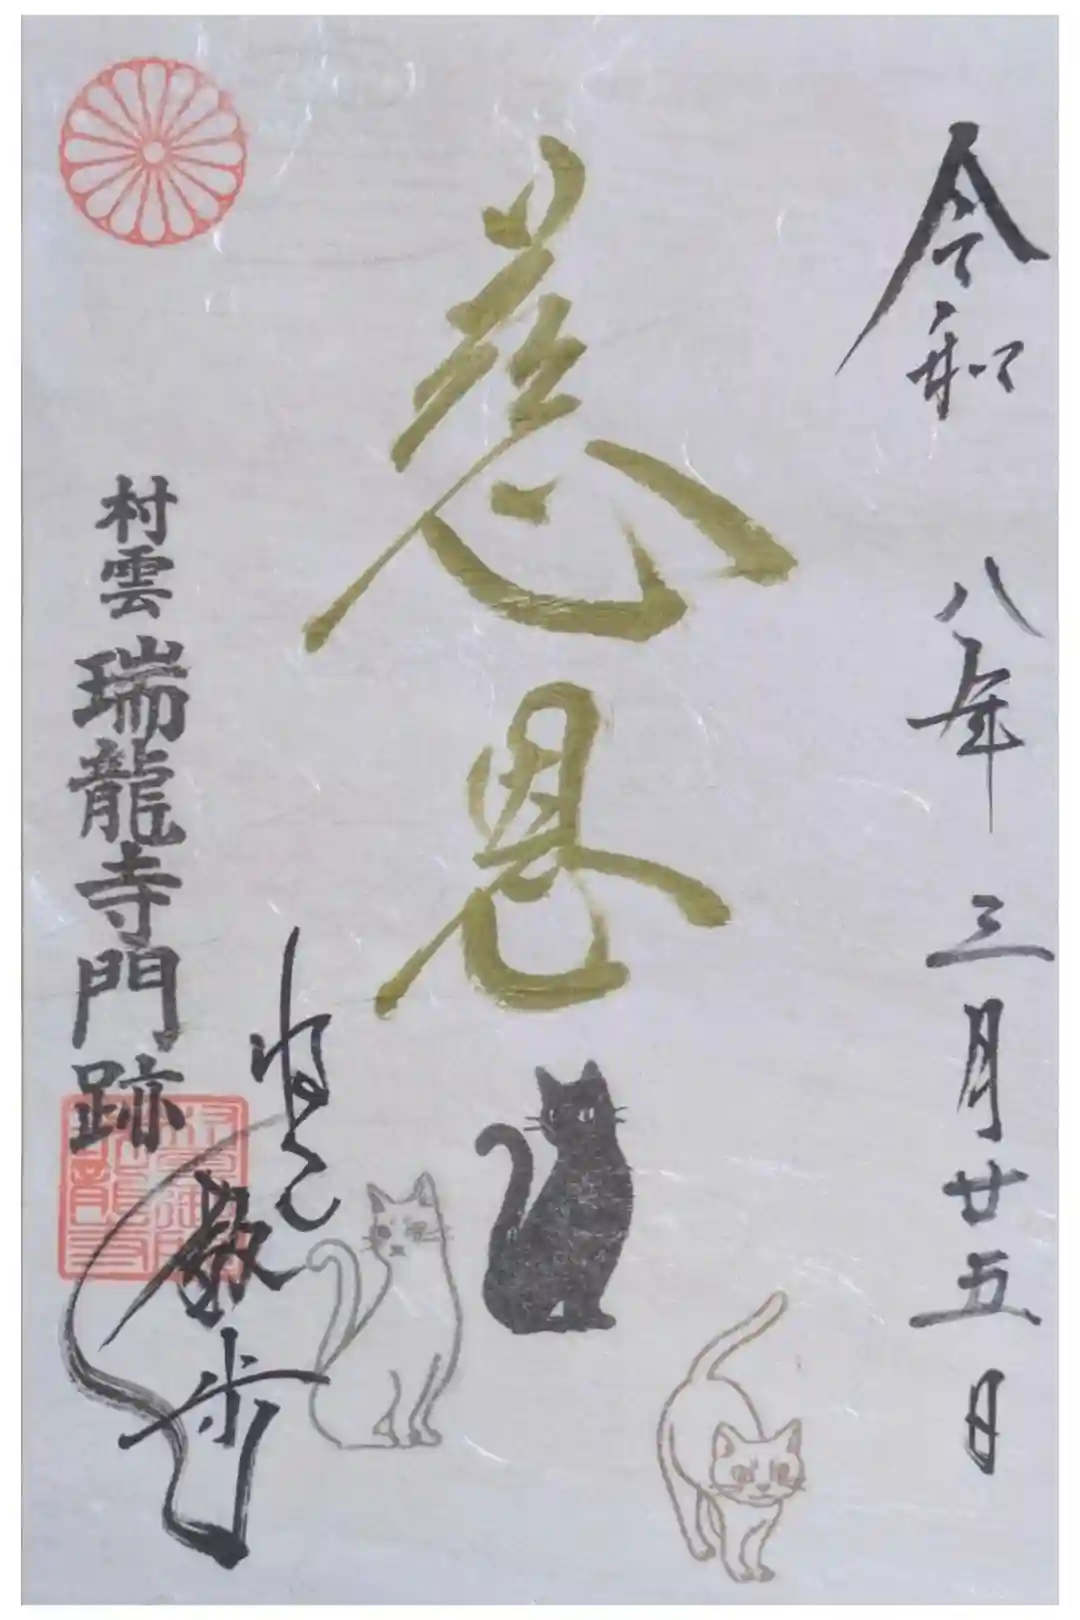 令和 八年 三月廿五日
慈恩
村雲 瑞龍寺門跡